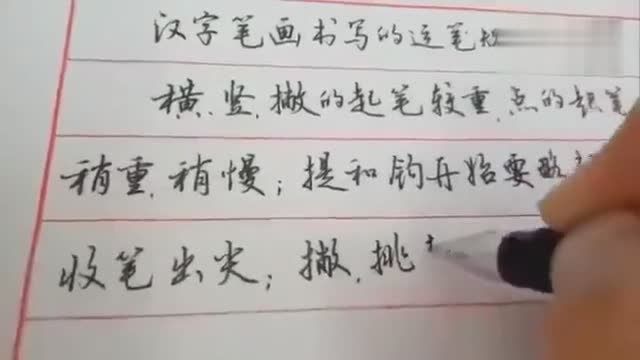 汉字笔画书写的运笔
横、竖、撇的起笔较重,点的起笔
稍重,稍慢;提和钩开始要略
收笔出尖;撇,挑